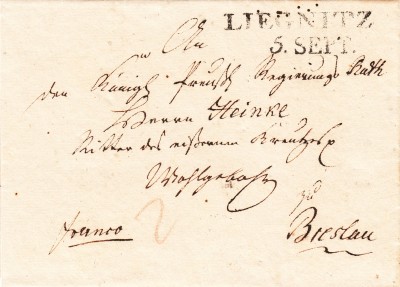 LIEGNITZ
5. SEPT.
An
den Königl Preuss Regierungs Rath
Herrn Heinke
Ritter des eisernen Kreutzes
Wohlgebohr
zu
Breslau
franco
2